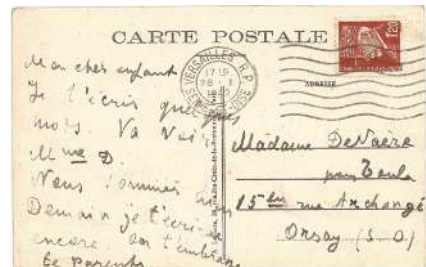 CARTE POSTALE
VERSAILLES R.P.
17
28 - 1
SEINE-ET-OISE
1F20
ADRESSE
Mon cher enfant
Je t'écris quelques
mots. Va voir
Mme D.
Nous sommes
Demain je t'écrirai
encore. On t'embrasse
te Parents
Madame DeNaère
pour
15 ter rue Archangé
Orsay (S.O)